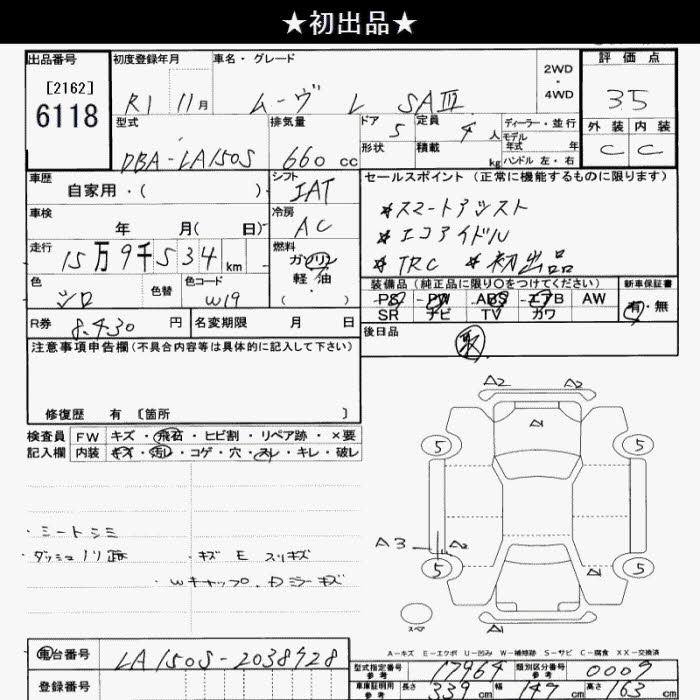 ★初出品★
出品番号 初度登録年月 車名・グレード 2WD ・ 4WD 評価点
[2162]
6118
R1 11月 ムーヴ L SAⅢ 3.5
型式 排気量 ドア 5 定員 4人 ディーラー・並行
モデル年式 年
外装 内装
DBA-LA150S 660cc 形状 積載 kg ハンドル 左・右 C C
車歴 自家用・( ) シフト IAT セールスポイント(正常に機能するものに限ります)
車検 年 月( 日) 冷房 AC
*スマートアシスト
*エコアイドル
*TRC *初出品
走行 15万9千534km 燃料 ガソリン 軽・油
色 シロ 色替 色コード W19
装備品(純正品に限り○をつけてください) 新車保証書
PS PW ABS エアB AW 有・無
SR ナビ TV カワ
R券 8.430円 名変期限 月 日
後日品 取
注意事項申告欄(不具合内容等は具体的に記入して下さい)
修復歴 有 [箇所 ]
検査員 FW キズ・飛石・ヒビ割・リペア跡・×要
記入欄 内装 キズ・汚レ・コゲ・穴・スレ・キレ・破レ
・シートシミ
・ダッシュノリ跡 ・キズ E スリキズ
・Wキャップ、Dミラーキズ
A2 A2
A1
5 5
A3 A2
5 A1 5
スペア
A-キズ E-エクボ U-凹み W-補修跡 S-サビ C-腐食 XX-交換済
車台番号 LA150S-2038928
登録番号
型式指定番号 参考 17964 類別区分番号 参考 0009
車庫証明用 参考 長さ 339cm 幅 147cm 高さ 163cm